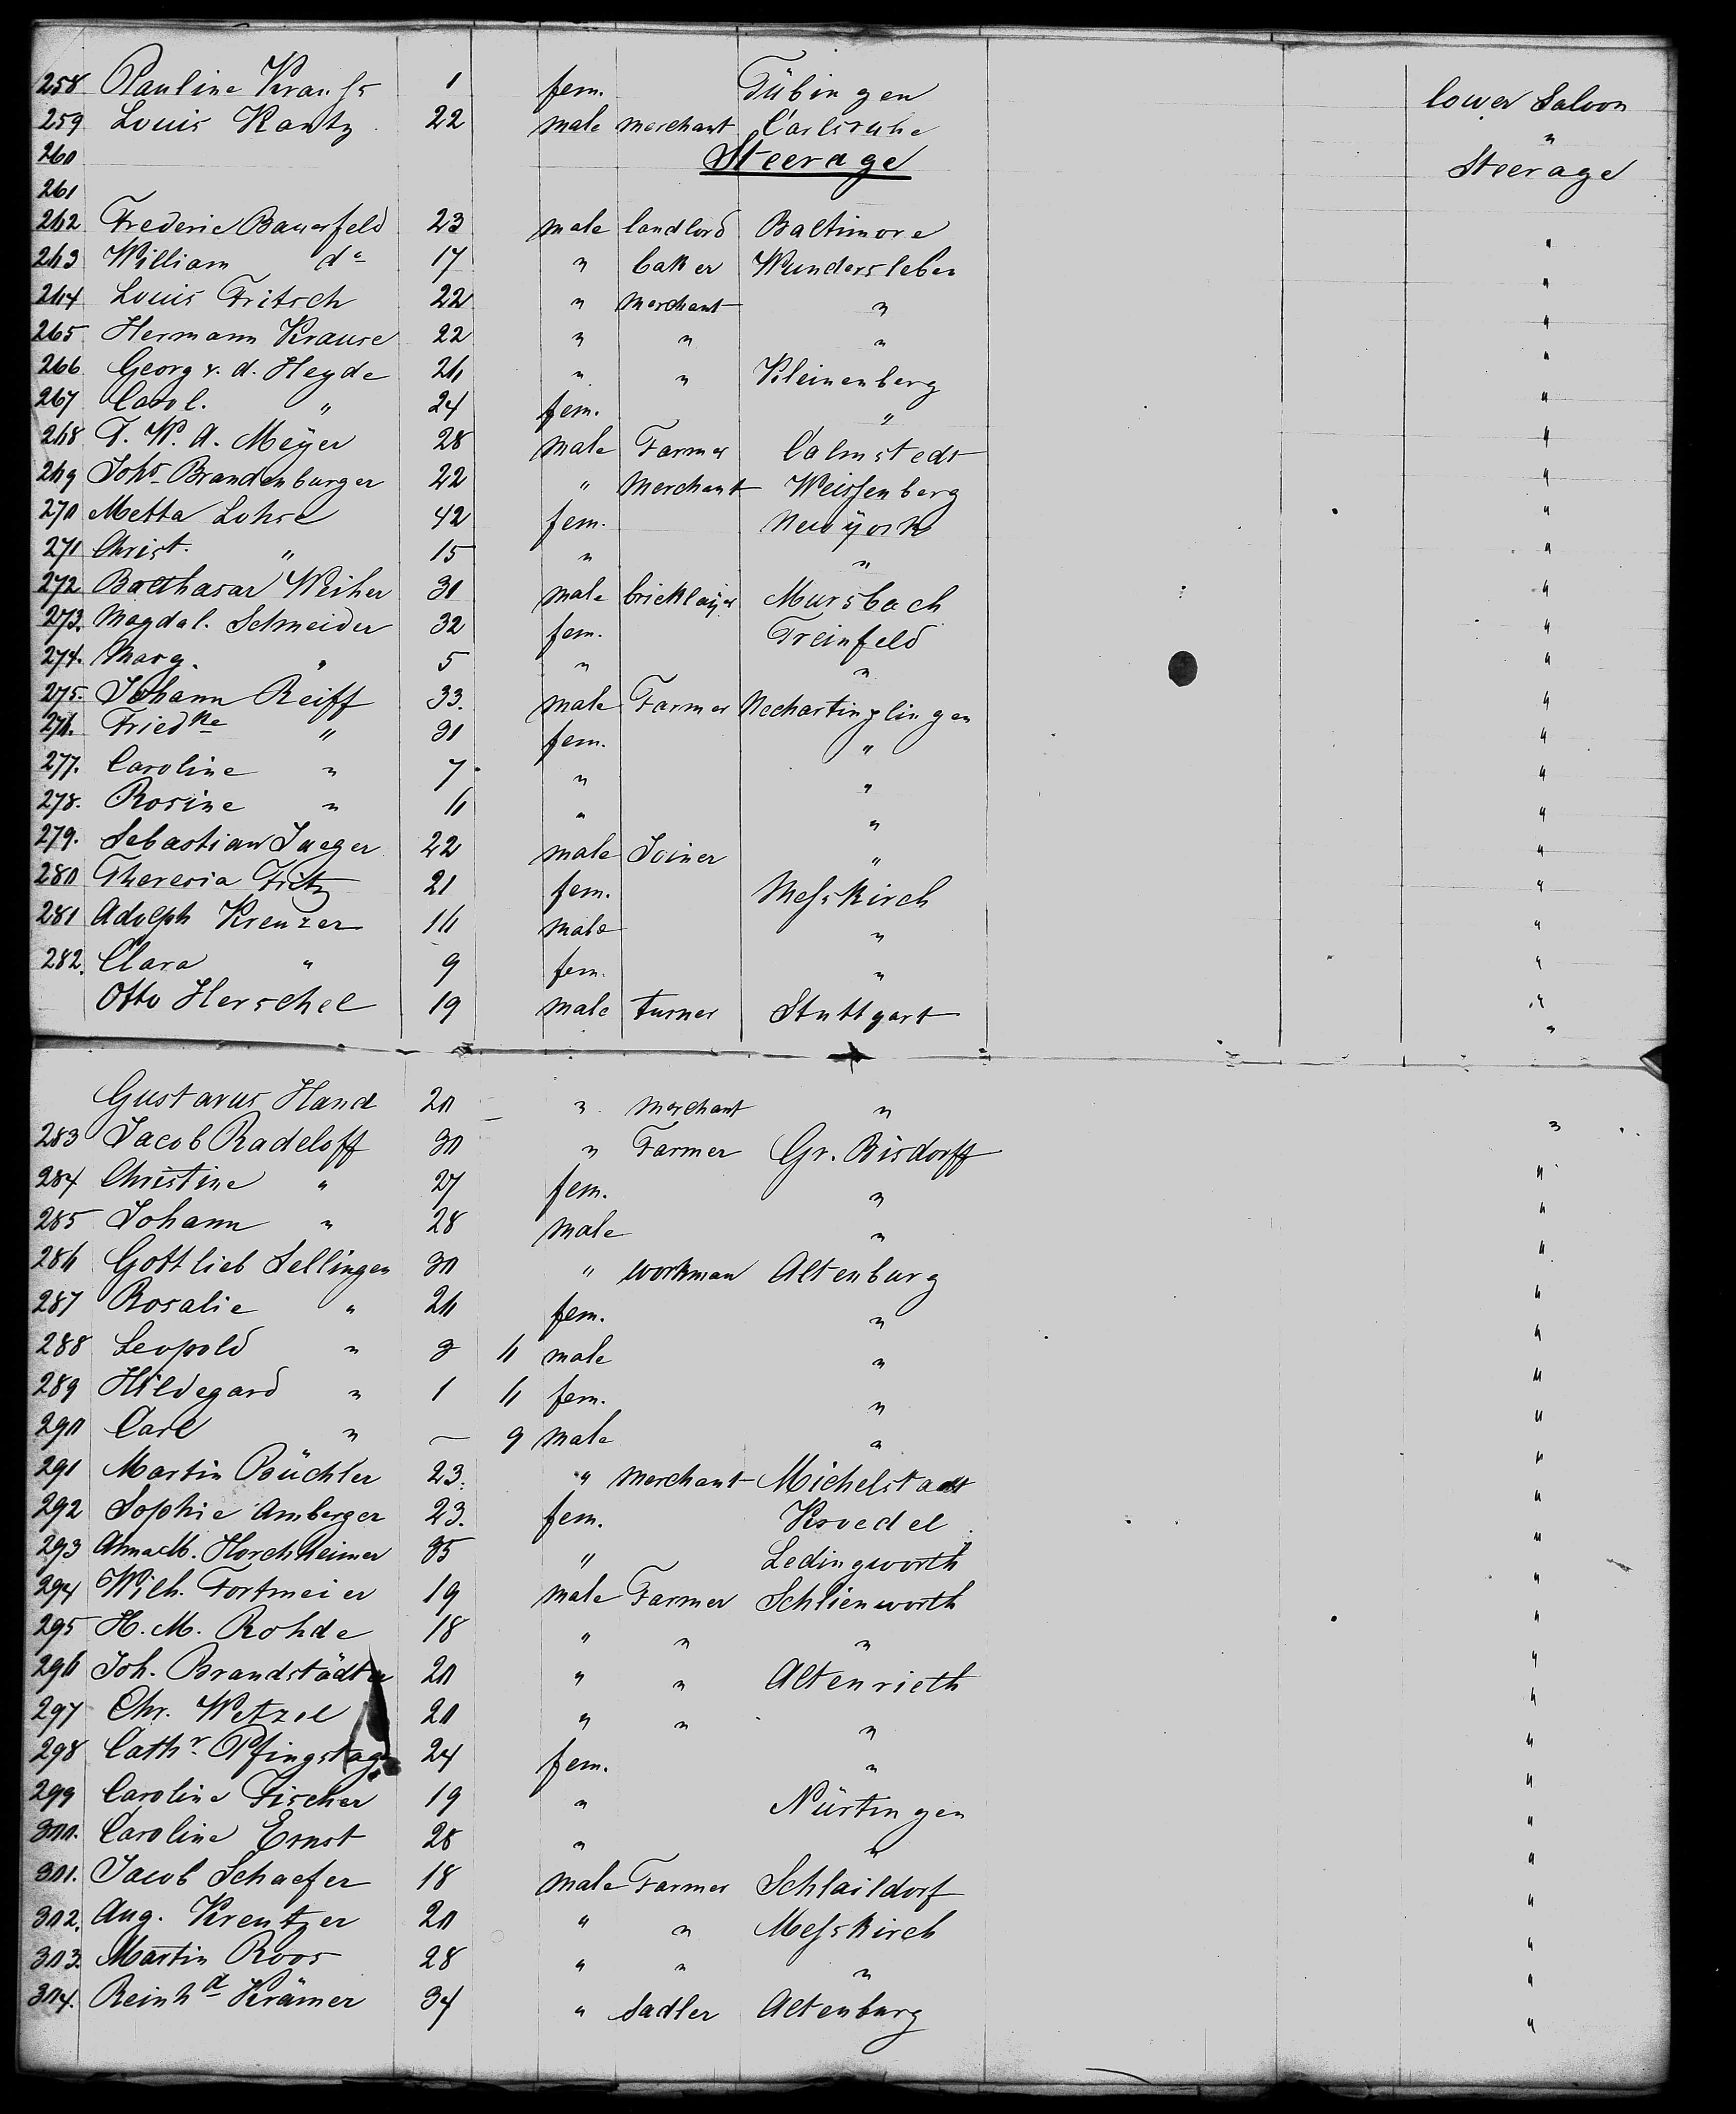 258 Pauline Krauſs 1 fem. Tübingen lower Saloon
259 Louis Kantz 22 male merchant Carlsruhe "
260 Steerage Steerage
261
262 Frederic Bauerfeld 23 male landlord Baltimore "
263 William do 17 " baker Wundersleben "
264 Louis Fritsch 22 " merchant " "
265 Hermann Krause 22 " " " "
266 Georg v. d. Heyde 26 " " Kleinenberg "
267 Carol. " 24 fem. " "
268 F. W. A. Meÿer 28 male Farmer Calmstedt "
269 Johs Brandenburger 22 " merchant Weiſsenberg "
270 Metta Lohse 42 fem. New ÿork "
271 Christ. " 15 " " "
272 Balthasar Weiher 30 male bricklaÿer Mursbach "
273. Magdal. Schneider 32 fem. Treinfeld "
274. Marg. " 5 " " "
275. Johann Reiff 33. male Farmer Neckartinzlingen "
276. Friedke " 31 fem. " "
277. Caroline " 7 " " "
278. Rosine " 6 " " "
279. Sebastian Jaeger 22 male Joiner " "
280 Theresia Fritz 21 fem. Meſskirch "
281 Adolph Kreuzer 16 male " "
282. Clara " 9 fem. " "
Otto Herschel 19 male turner Stuttgart "
Gustavus Hand 20 " merchant " "
283 Jacob Radeloff 30 " Farmer Gr. Bisdorff "
284 Christine " 27 fem. " "
285 Johann " 28 male " "
286 Gottlieb Sellingen 30 " workman Altenburg "
287 Rosalie " 26 fem. " "
288 Leopold " 3 6 male " "
289 Hildegard " 1 6 fem. " "
290 Carl " — 9 male " "
291 Martin Büchler 23. " merchant Michelstadt "
292 Sophie Amberger 23. fem. Kroedel "
293 Anna M. Horchheimer 35 " Ledingworth "
294 Wilh. Fortmeier 19 male Farmer Schlienworth "
295 H. M. Rohde 18 " " " "
296 Joh. Brandstädter 20 " " Altenrieth "
297 Chr. Wetzel 20 " " " "
298 Cathr. Pfingstag 24 fem. " "
299 Caroline Fischer 19 " Nürtingen "
300. Caroline Ernst 28 " " "
301. Jacob Schaefer 18 male Farmer Schlaildorf "
302. Aug. Kreutzer 20 " " Meſskirch "
303. Martin Roos 28 " " " "
304. Reinhd Krämer 34 " Sadler Altenburg "